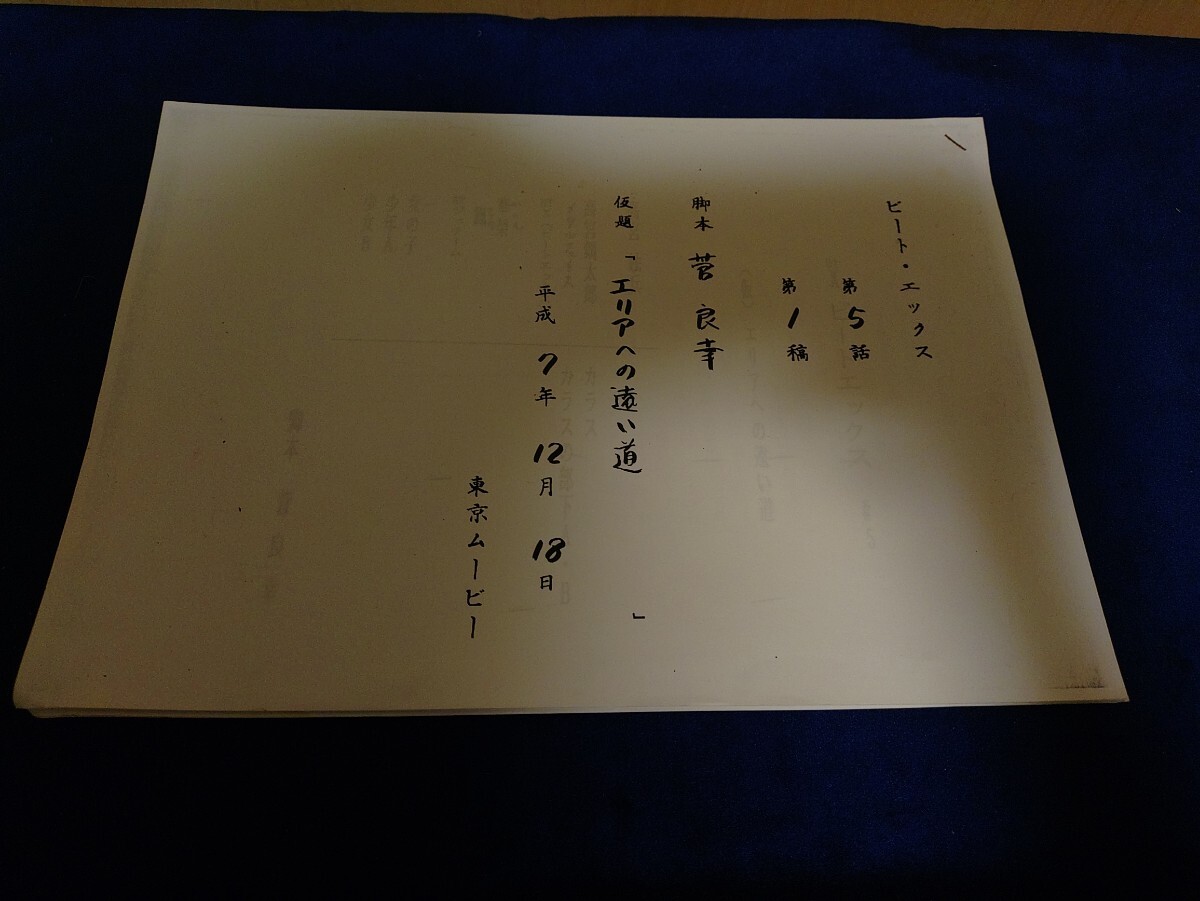 ビート・エックス
第5話
第1稿
脚本 菅良幸
仮題 「エリアへの遠い道 」
平成7年12月18日
東京ムービー